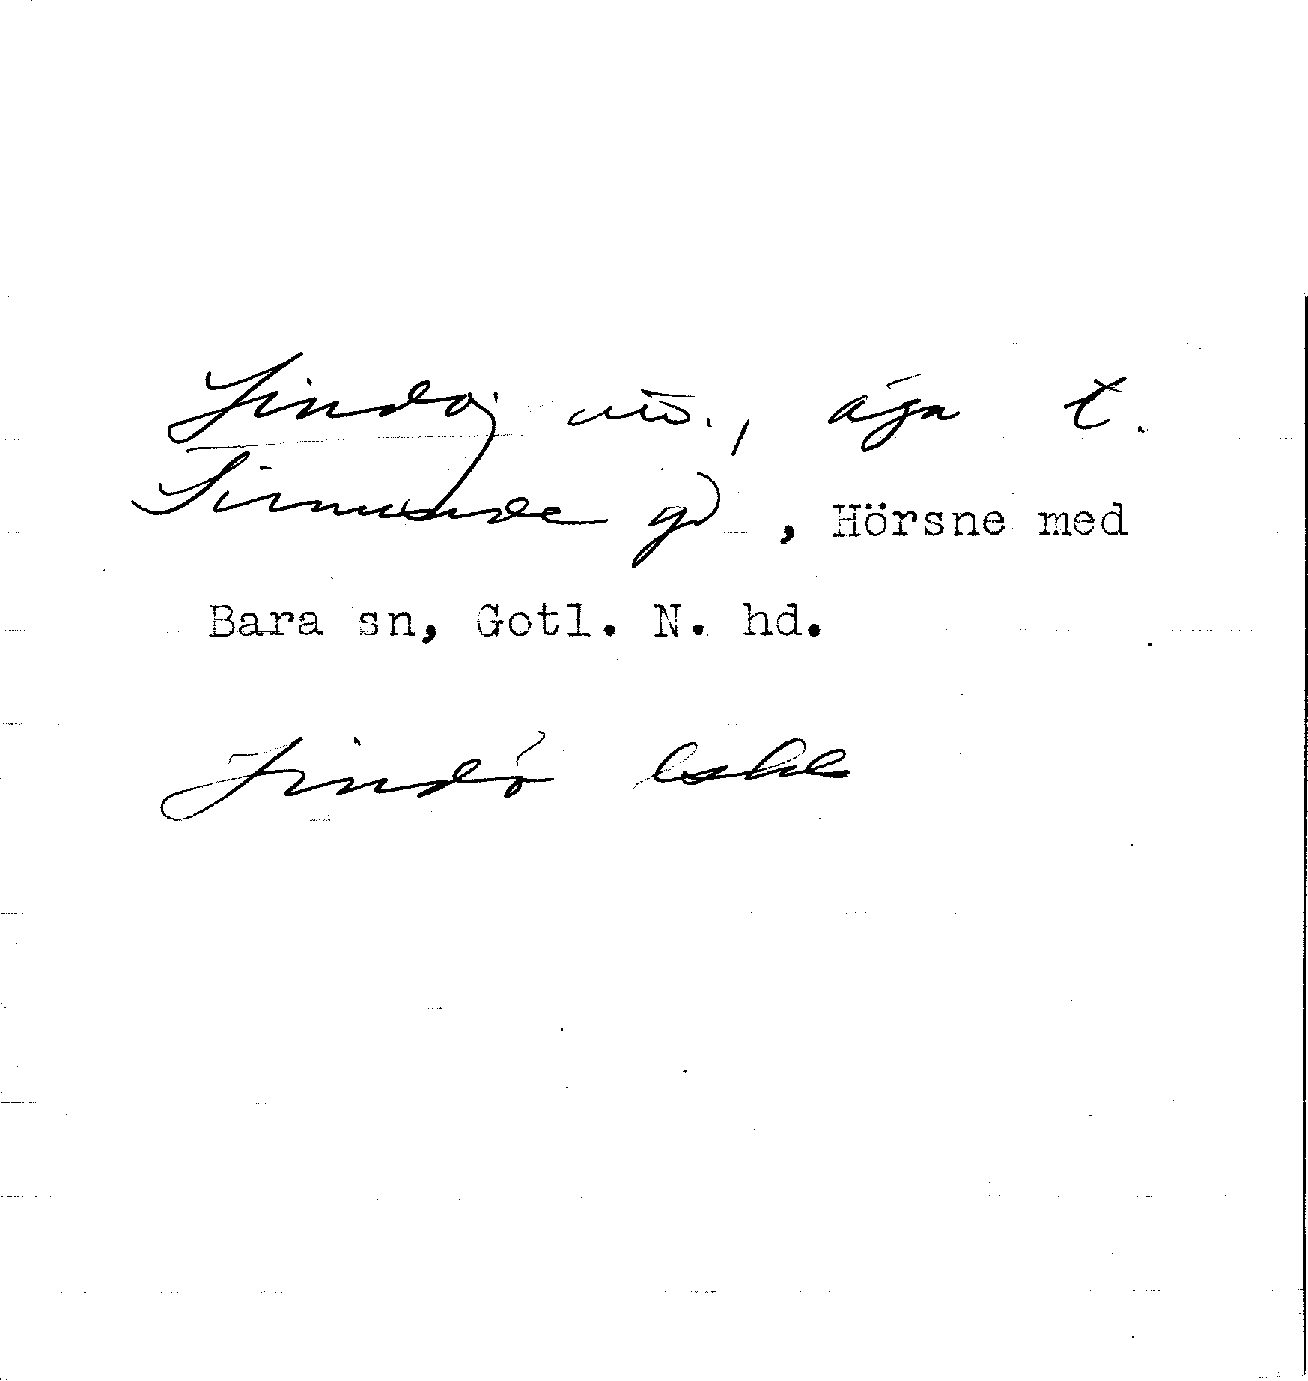 Lindoj utö., äga t.
Simunde gd, Hörsne med
Bara sn, Gotl. N. hd.
Lindö